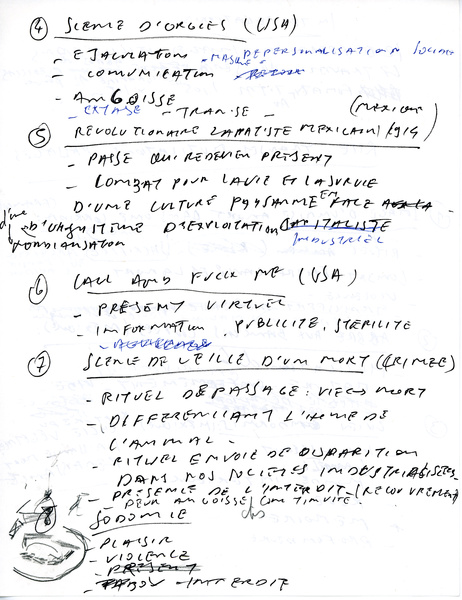 ④ SCENE D'ORGIES (USA)
- EJACULATION - MASQUE DEPERSONNALISATION SOCIALE
- COMUNICATION -
- ANGOISSE
- EXTASE - TRANSE -
(MEXIQUE)
⑤ REVOLUTIONAIRE ZAPATISTE MEXICAIN 1914
- PASSE QUI REDEVIEN PRESENT
- COMBAT POUR LA VIE ET LA SURVIE
D'UNE CULTURE PAYSANNE EN FACE
d'une D'UN SYSTEME D'EXPLOITATION CAPITALISTE
MONDIALISATION INDUSTRIEL
⑥ CALL AND FUCK ME (USA)
- PRESENT VIRTUEL
- INFORMATION. PUBLICITE, STERILITE
⑦ SCENE DE VEILLE D'UN MORT (CRIMEE)
- RITUEL DE PASSAGE: VIE MORT
- DIFFERENCIANT L'HOME DE
L'ANIMAL -
- RITUEL EN VOIE DE DISPARITION
DANS NOS SOCIETES INDUSTRIALISEES.
- PRESENCE DE L'INTERDIT - (RECOUVREMENT)
PEUR ANGOISSE CONTINUITE.
⑧ SODOMIE
- PLAISIR
- VIOLENCE
- PRESENT
- TABOU - INTERDIT